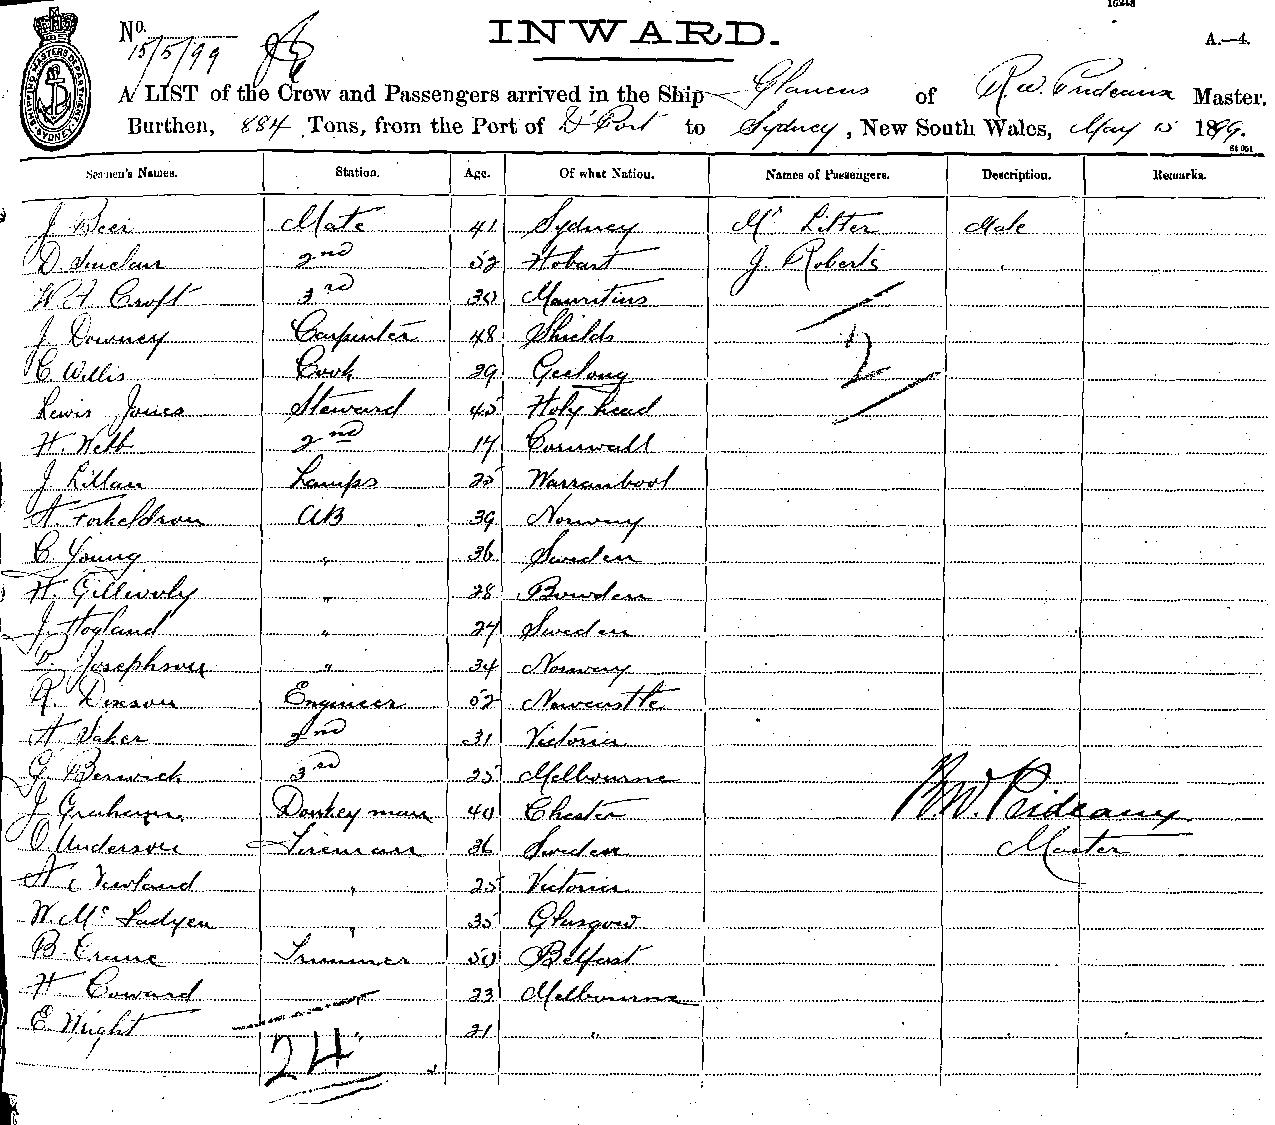 16248
No. 15/5/99
INWARD.
A.—4.
A LIST of the Crew and Passengers arrived in the Ship Glaucus of R.W. Prideaux Master,
Burthen, 884 Tons, from the Port of D'Port to Sydney, New South Wales, May 15 1899.
Seamen's Names. Station. Age. Of what Nation. Names of Passengers. Description. Remarks.
J Beer Mate 41 Sydney Mr Litter Male
D Sinclair 2nd 52 Hobart J. Roberts "
W H Croft 3rd 30 Mauritius
J. Downey Carpenter 48 Shields
C Willis Cook 29 Geelong 2
Lewis Jones Steward 45 Holy head
H. Webb 2nd 17 Cornwall
J Lillan Lamps 25 Warrambool
A. Torkeldson AB 39 Norway
C. Young " 36 Sweden
H. 28 Bowden
J. Hogland " 24 Sweden
Josephson " 34 Norway
R. Dixson Engineer 52 Newcastle
A Baker 2nd 31 Victoria
G. Berwick 3rd 25 Melbourne
J Graham Donkeyman 40 Chester
R.W. Prideaux
C Anderson Fireman 36 Sweden
Master
A. Newland " 25 Victoria
W. Mc Fadyen " 35 Glasgow
B. Crane Trimmer 50 Belfast
H Coward 23 Melbourne
E Wright " 21 "
24